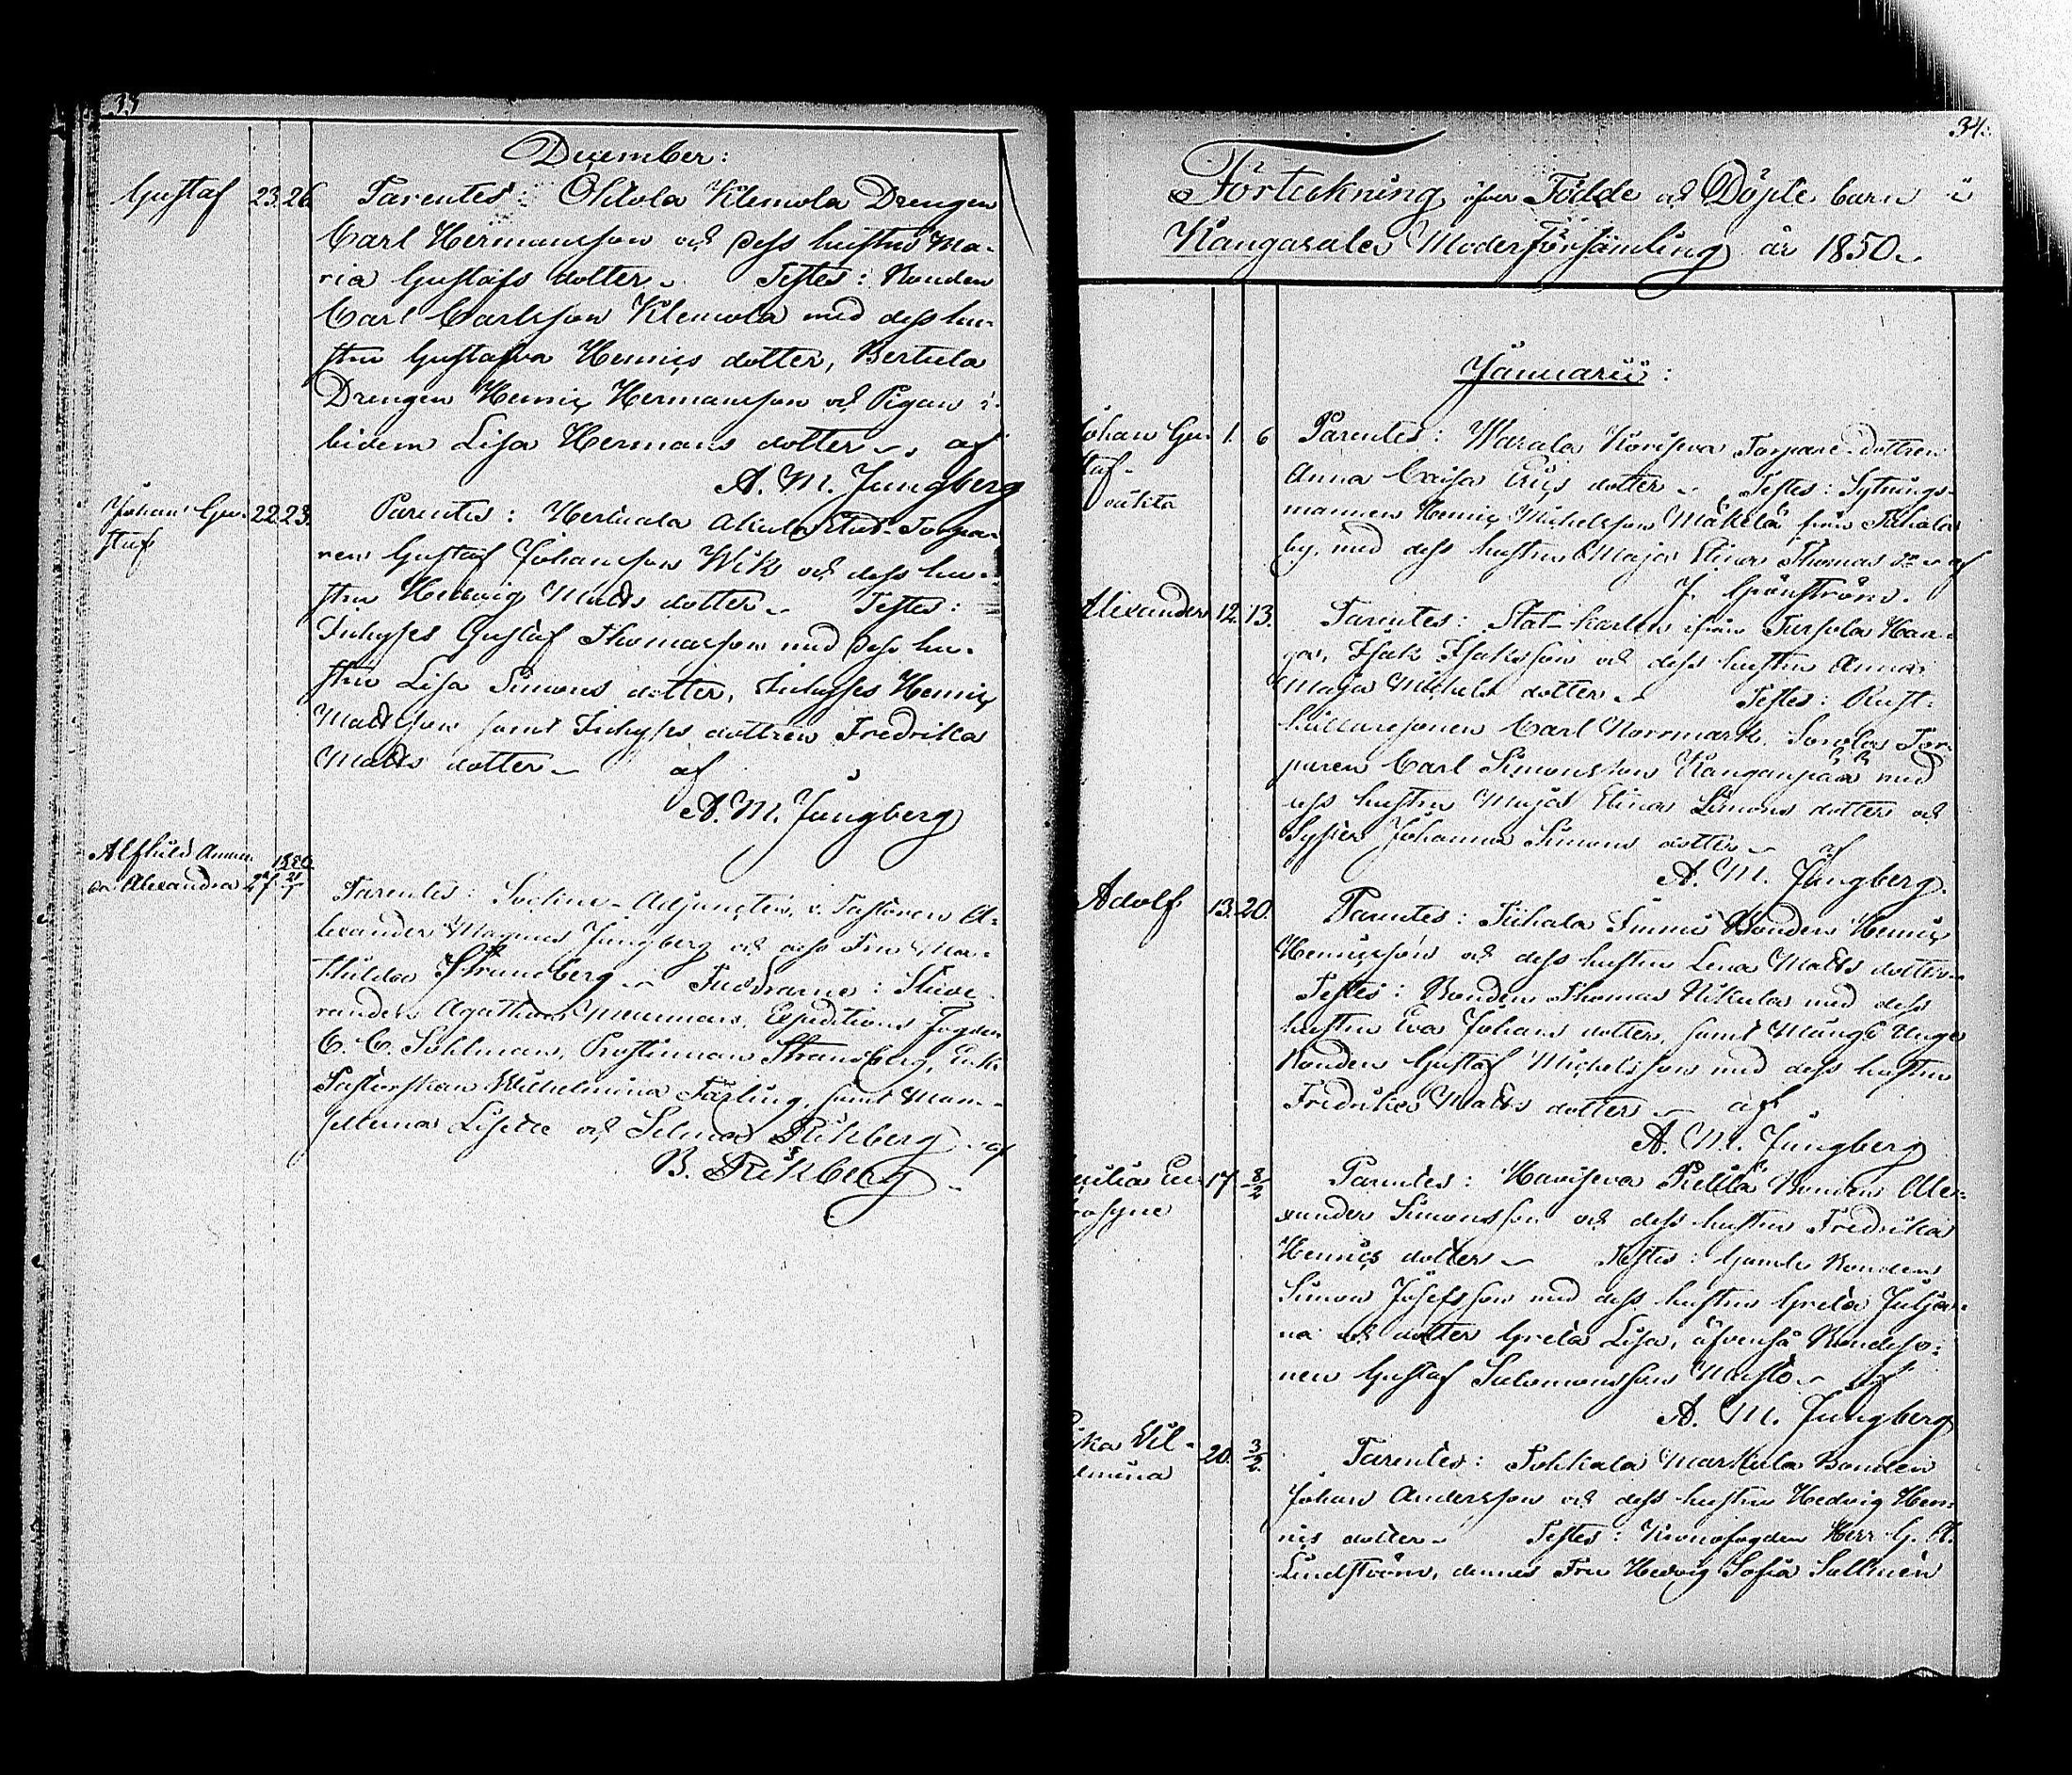 33
December:
Gustaf 23. 26. Parentes: Ohtola Klemola Drengen
Carl Hermansson och dess hustru Ma-
ria Gustafs dotter. Testes: Bonden
Carl Carlsson Klemola med dess hu-
stru Gustafva Henrics dotter, Bertula
Drengen Henric Hermansson och Pigan i-
bidem Lisa Hermans dotter. af
A. M. Jungberg
Johan Gu- 22. 23. Parentes: Hertuala Torpa-
staf ren Gustaf Johansson Wik och dess hu-
stru Hedvig Matts dotter. Testes:
Inhyses Gustaf Thomasson med dess hu-
stru Lisa Simons dotter, Inhyses Henric
Mattsson samt Inhyses dottren Fredrika
Matts dotter. af
A. M. Jungberg
Alfhild 1850
Alexandra Parentes: Sockne-Adjuncten, v. Pastoren A-
lexander Magnus Jungberg och dess Fru Ma-
thilda Strandberg. Faddrarne: Stude-
randen Agathon Meurman, Expeditions Fogden
C. C. Sohlman, Prostinnan Strandberg, Enk.
Pastorskan Wilhelmina samt Mam-
sellerna Lisette och Selma Rikberg. af
B. Rikberg.
34.
Förteckning öfver Födde och Döpte barn i
Kangasala Moderförsamling år 1850.
Januarii:
Johan Gu- 1. 6 Parentes: Warala Torpare-dottren
staf Anna Caisa Erics dotter. Testes: Sytnings-
oäkta mannen Henric Michelsson Mäkelä från Tiihala
by, med dess hustru Maja Elina Thomas dr. af
J. Grönström.
Alexander 12. 13. Parentes: Stat-karlen ifrån Tursola Han-
Isak Isaksson och dess hustru Anna
Maja Michels dotter. Testes: Rust-
hållaresonen Carl Norrmark, Sorola Tor-
paren Carl Simonsson Kanganpää med
dess hustru Maja Elina Simons dotter och
Syster Johanna Simons dotter. af
A. M. Jungberg.
Adolf 13. 20. Parentes: Tiihala Simu Bonden Henric
Henricsson och dess hustru Lena Matts dotter.
Testes: Bonden Thomas Nikula med dess
hustru Eva Johans dotter, samt Unge
Bonden Gustaf Michelsson med dess hustru
Fredrika Matts dotter. af
A. M. Jungberg
17. 8/2 Parentes: Haviseva Pietilä Bonden Ale-
xander Simonsson och dess hustru Fredrika
Henrics dotter. Testes: Gamle Bonden
Simon Josefsson med dess hustru Greta Julja-
na och dotter Greta Lisa, äfvenså Bondeso-
nen Gustaf Salomonsson Maisto. af
A. M. Jungberg
20. 3/2 Parentes: Tohkala Markkula Bonden
Johan Andersson och dess hustru Hedvig Hen-
rics dotter. Testes: Kronofogden Herr G. A.
Lindström, dennes Fru Hedvig Sofia Sallmén